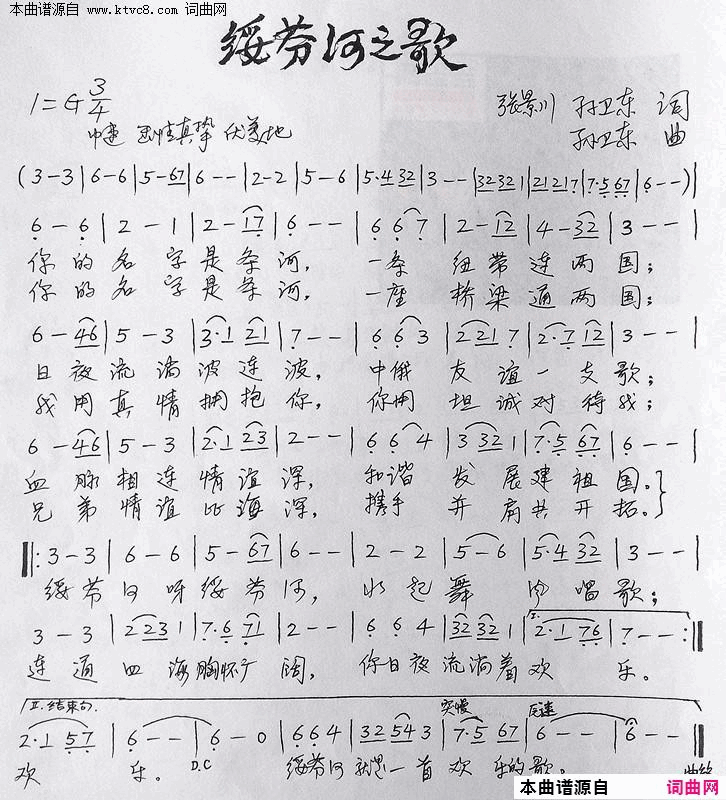 本曲谱源自
www.ktvc8.com 词曲网
绥芬河之歌
1=G 3/4
张景川 孙卫东 词
中速 真挚 优美地
孙卫东 曲
(3-3|6-6|5-67|6--|2-2|5-6|5·432|3--|32321|21217|7·567|6--)|
6-6|2-1|2-17|6--|667|2-12|4-32|3--|
你的名字是条河, 一条纽带连两国;
你的名字是条河, 一座桥梁通两国;
6-46|5-3|3·121|7--|663|2217|2·712|3--|
日夜流淌波连波, 中俄友谊一支歌;
我用真情拥抱你, 你用坦诚对待我;
6-46|5-3|2·123|2--|664|3321|7·567|6--|
血脉相连情谊深, 和谐发展建祖国。
兄弟情谊比海深, 携手并肩共开拓。
‖:3-3|6-6|5-67|6--|2-2|5-6|5·432|3--|
绥芬河呀绥芬河, 山起舞 唱歌;
3-3|2231|7·671|2--|664|32321|I. 2·176|7--:‖
连通四海胸怀广阔, 你日夜流淌着欢乐。
II. 结束句. 突慢 原速
2·157|6--|6-0|664|32543|7·567|6--|6--‖
欢乐。 D.C 绥芬河就是一首欢乐的歌。
本曲谱源自 词曲网